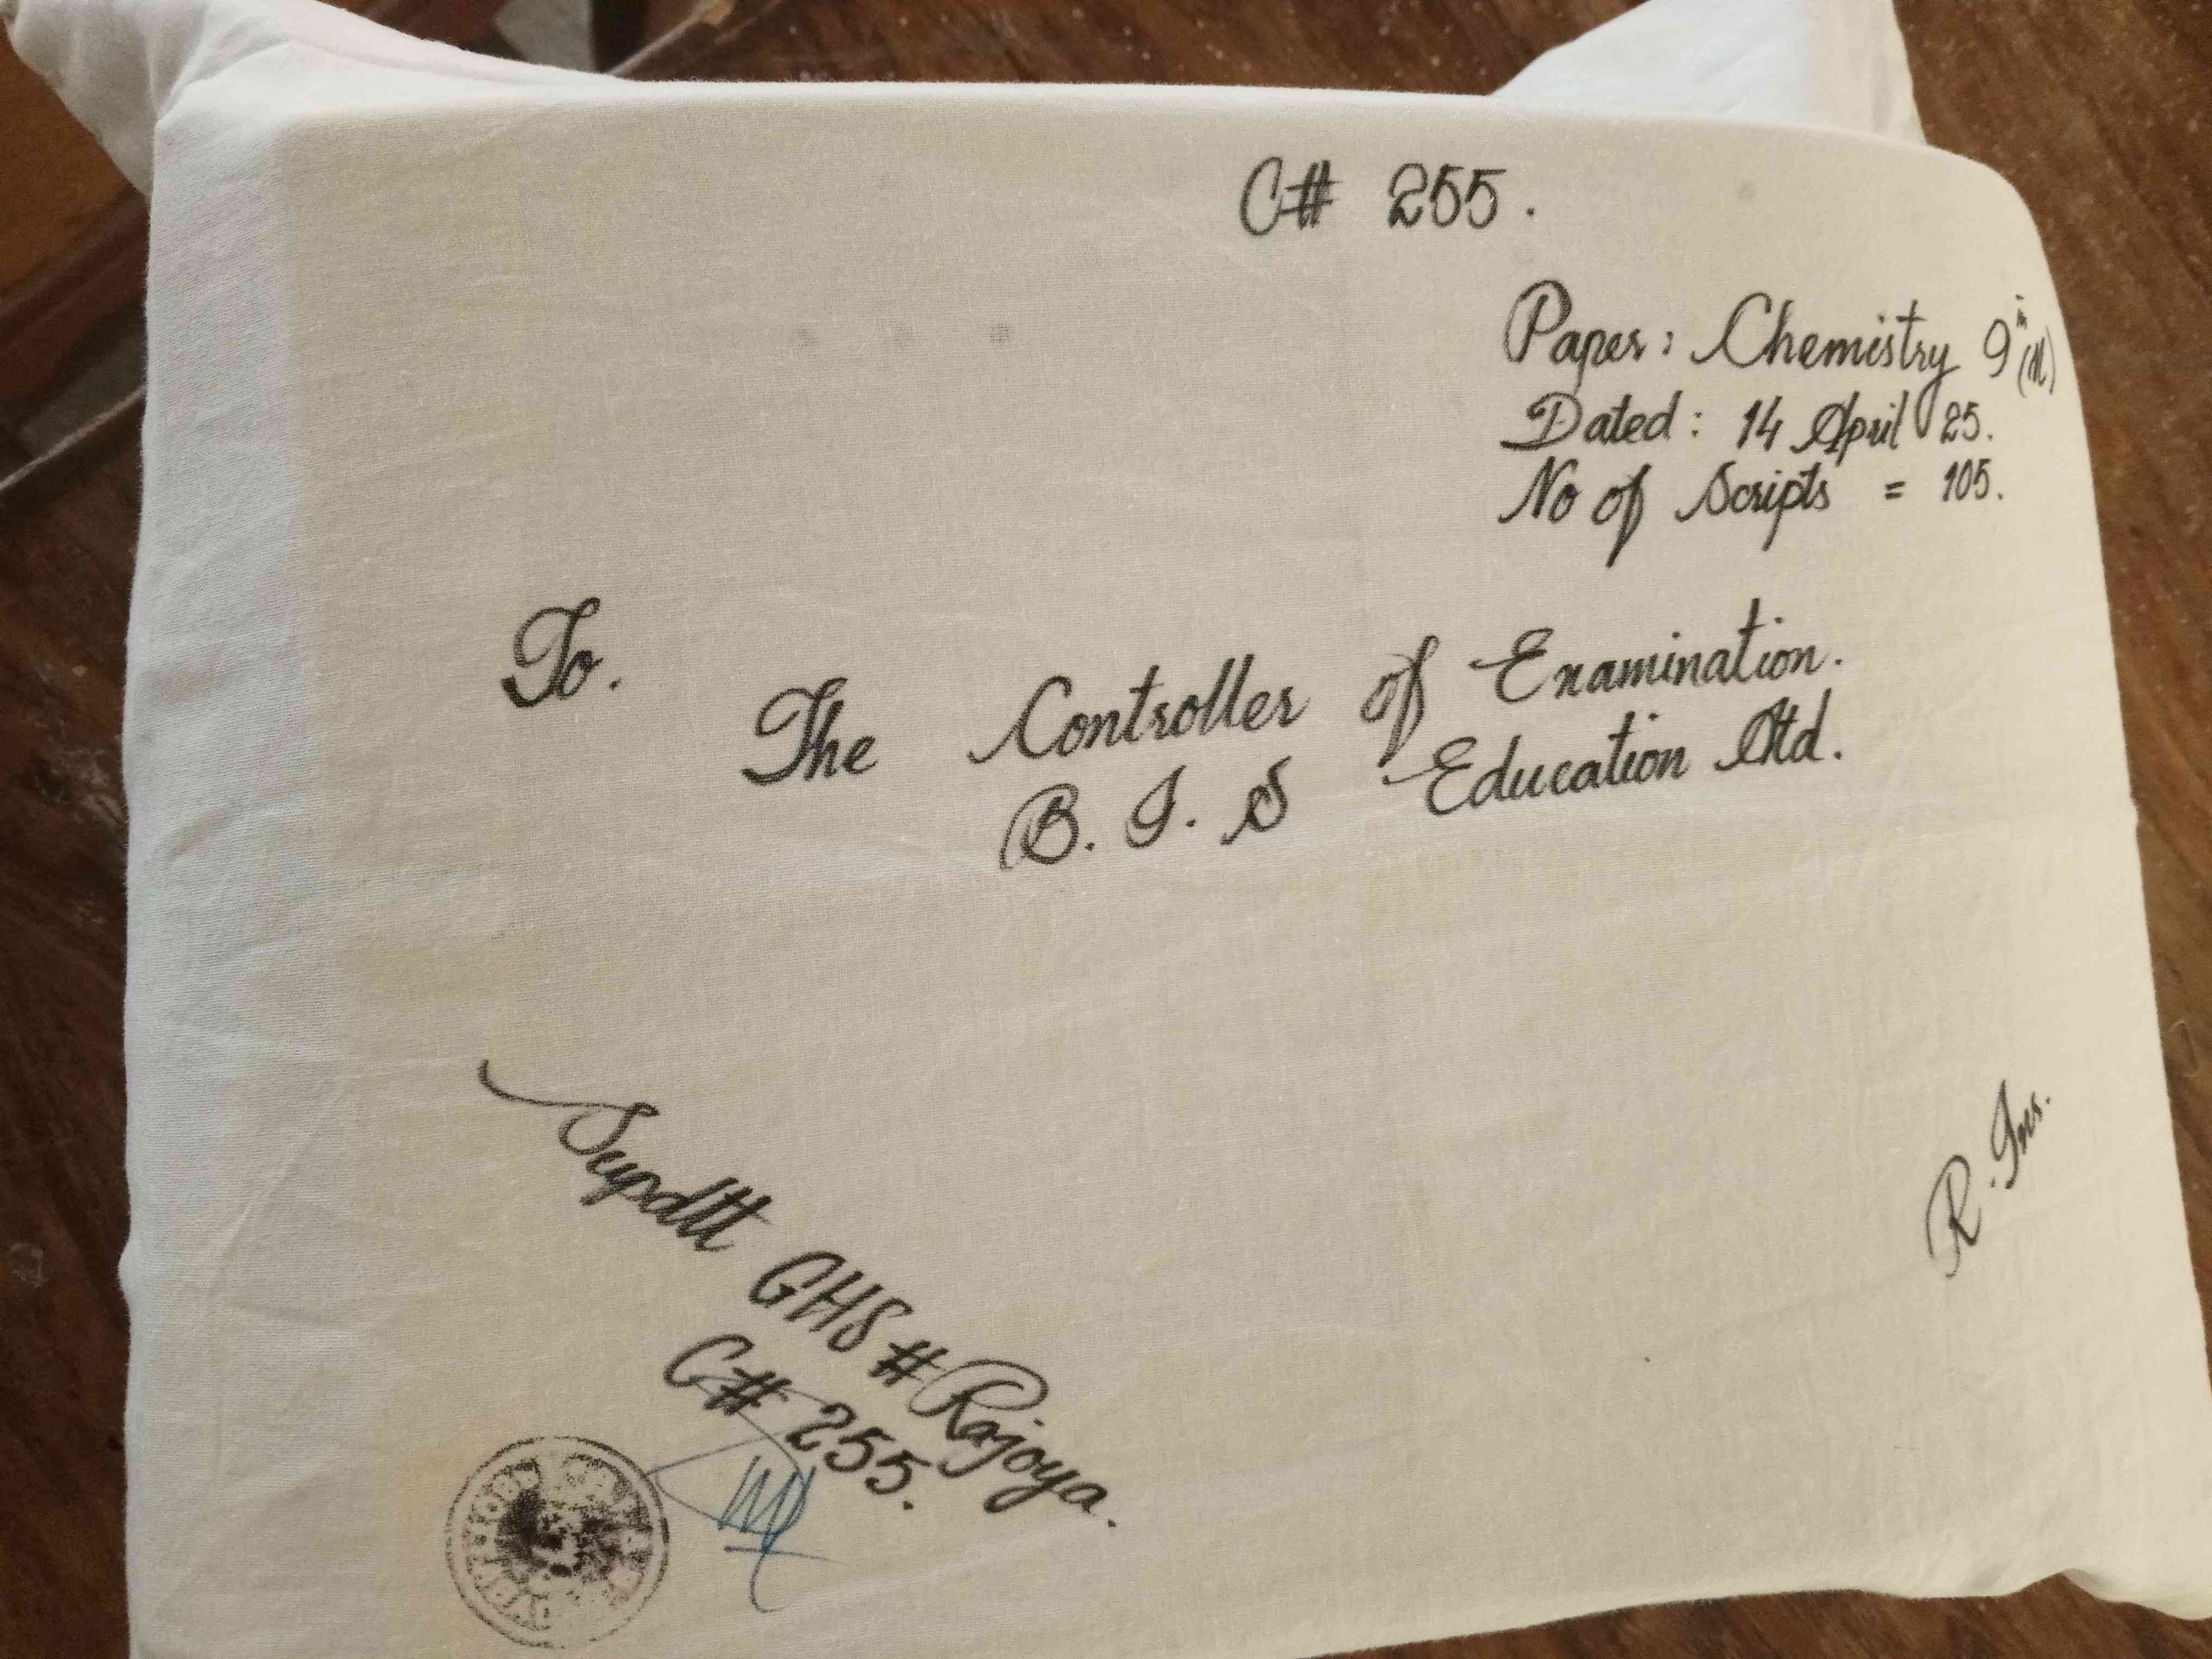 C# 255.
Paper: Chemistry 9th (M)
Dated: 14 April 25.
No of Scripts = 105.
To.
The Controller of Examination.
B. I. S Education Atd.
R. Ins.
Supdtt GHS # Rajoya.
C# 255.